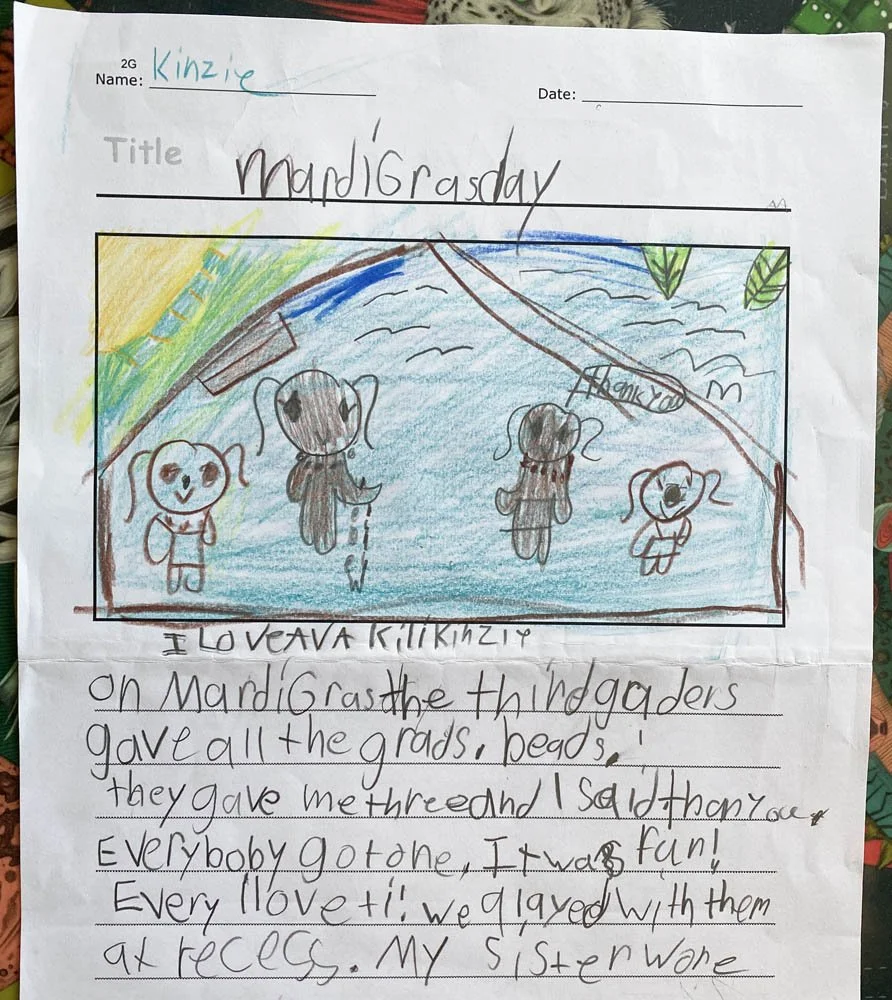 2G
Name: Kinzie
Date:
Title MardiGrasday
Thank You
I LOVE AVA KiliKinzie
on MardiGrasthe thirdgaders
gave all the grads. beads.!
they gave me threeand I Said thanYou.
Everyboby gotone, It was fun!
Every llove ti! we qlayed with them
at recess. My sister wore